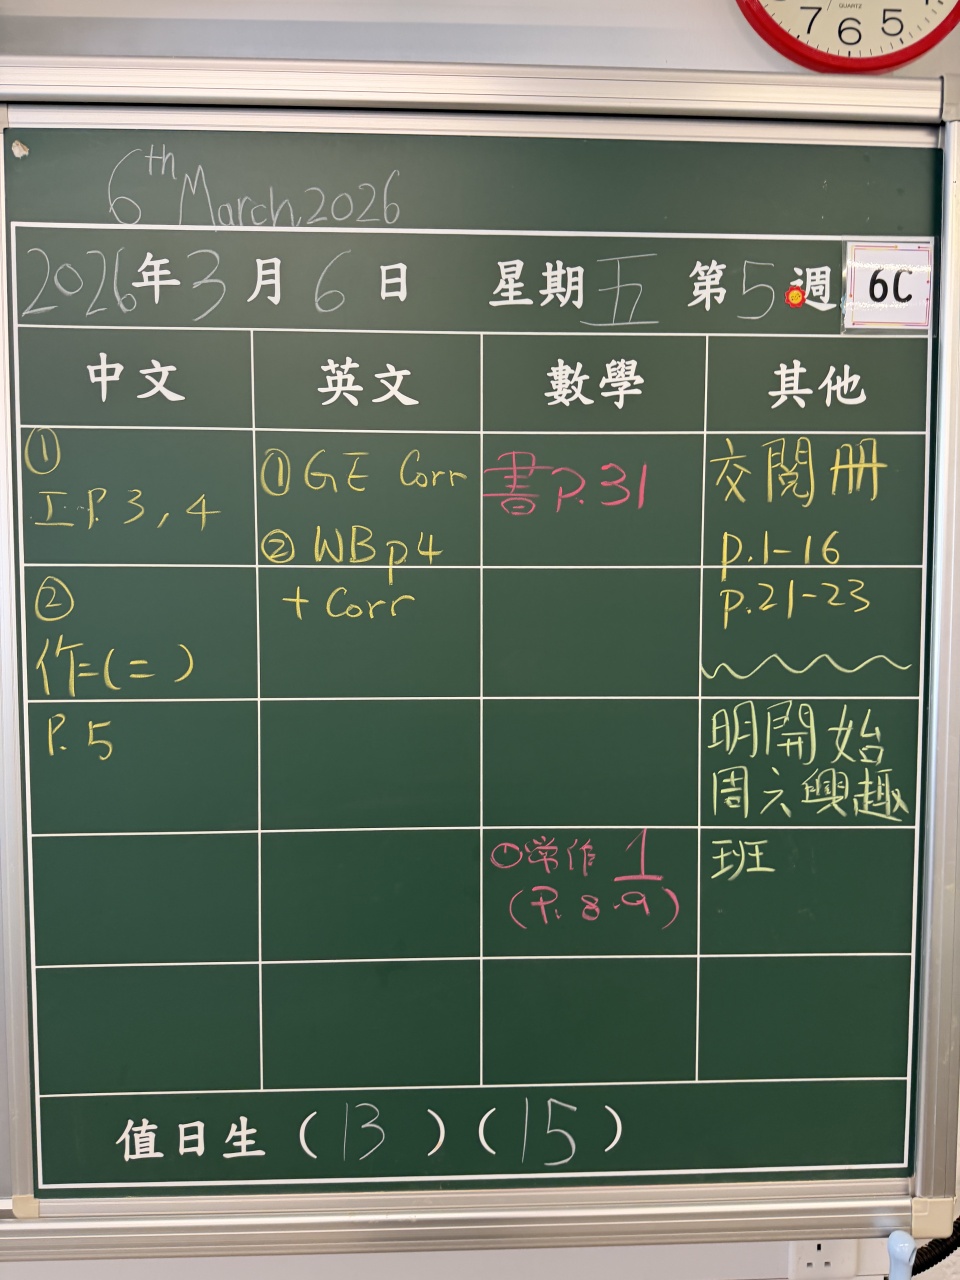 QUARTZ
7 6 5
6th March, 2026
2026年3月6日 星期五 第5週 6C
中文 英文 數學 其他
①
工P.3,4
②
作二(二)
P.5
① GE Corr
② WB p4
+ Corr
書P.31
①常作 1
(P.8.9)
交閱冊
p.1-16
p.21-23
明開始
周六興趣
班
值日生(13)(15)